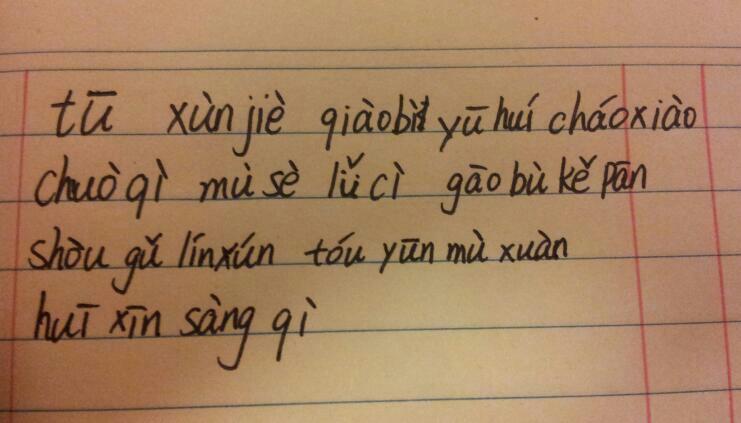 tū xùn jiè qiàobì yū huí cháoxiào
chuò qì mù sè lǚ cì gāo bù kě pān
shòu gǔ línxún tóu yūn mù xuàn
huī xīn sàng qì